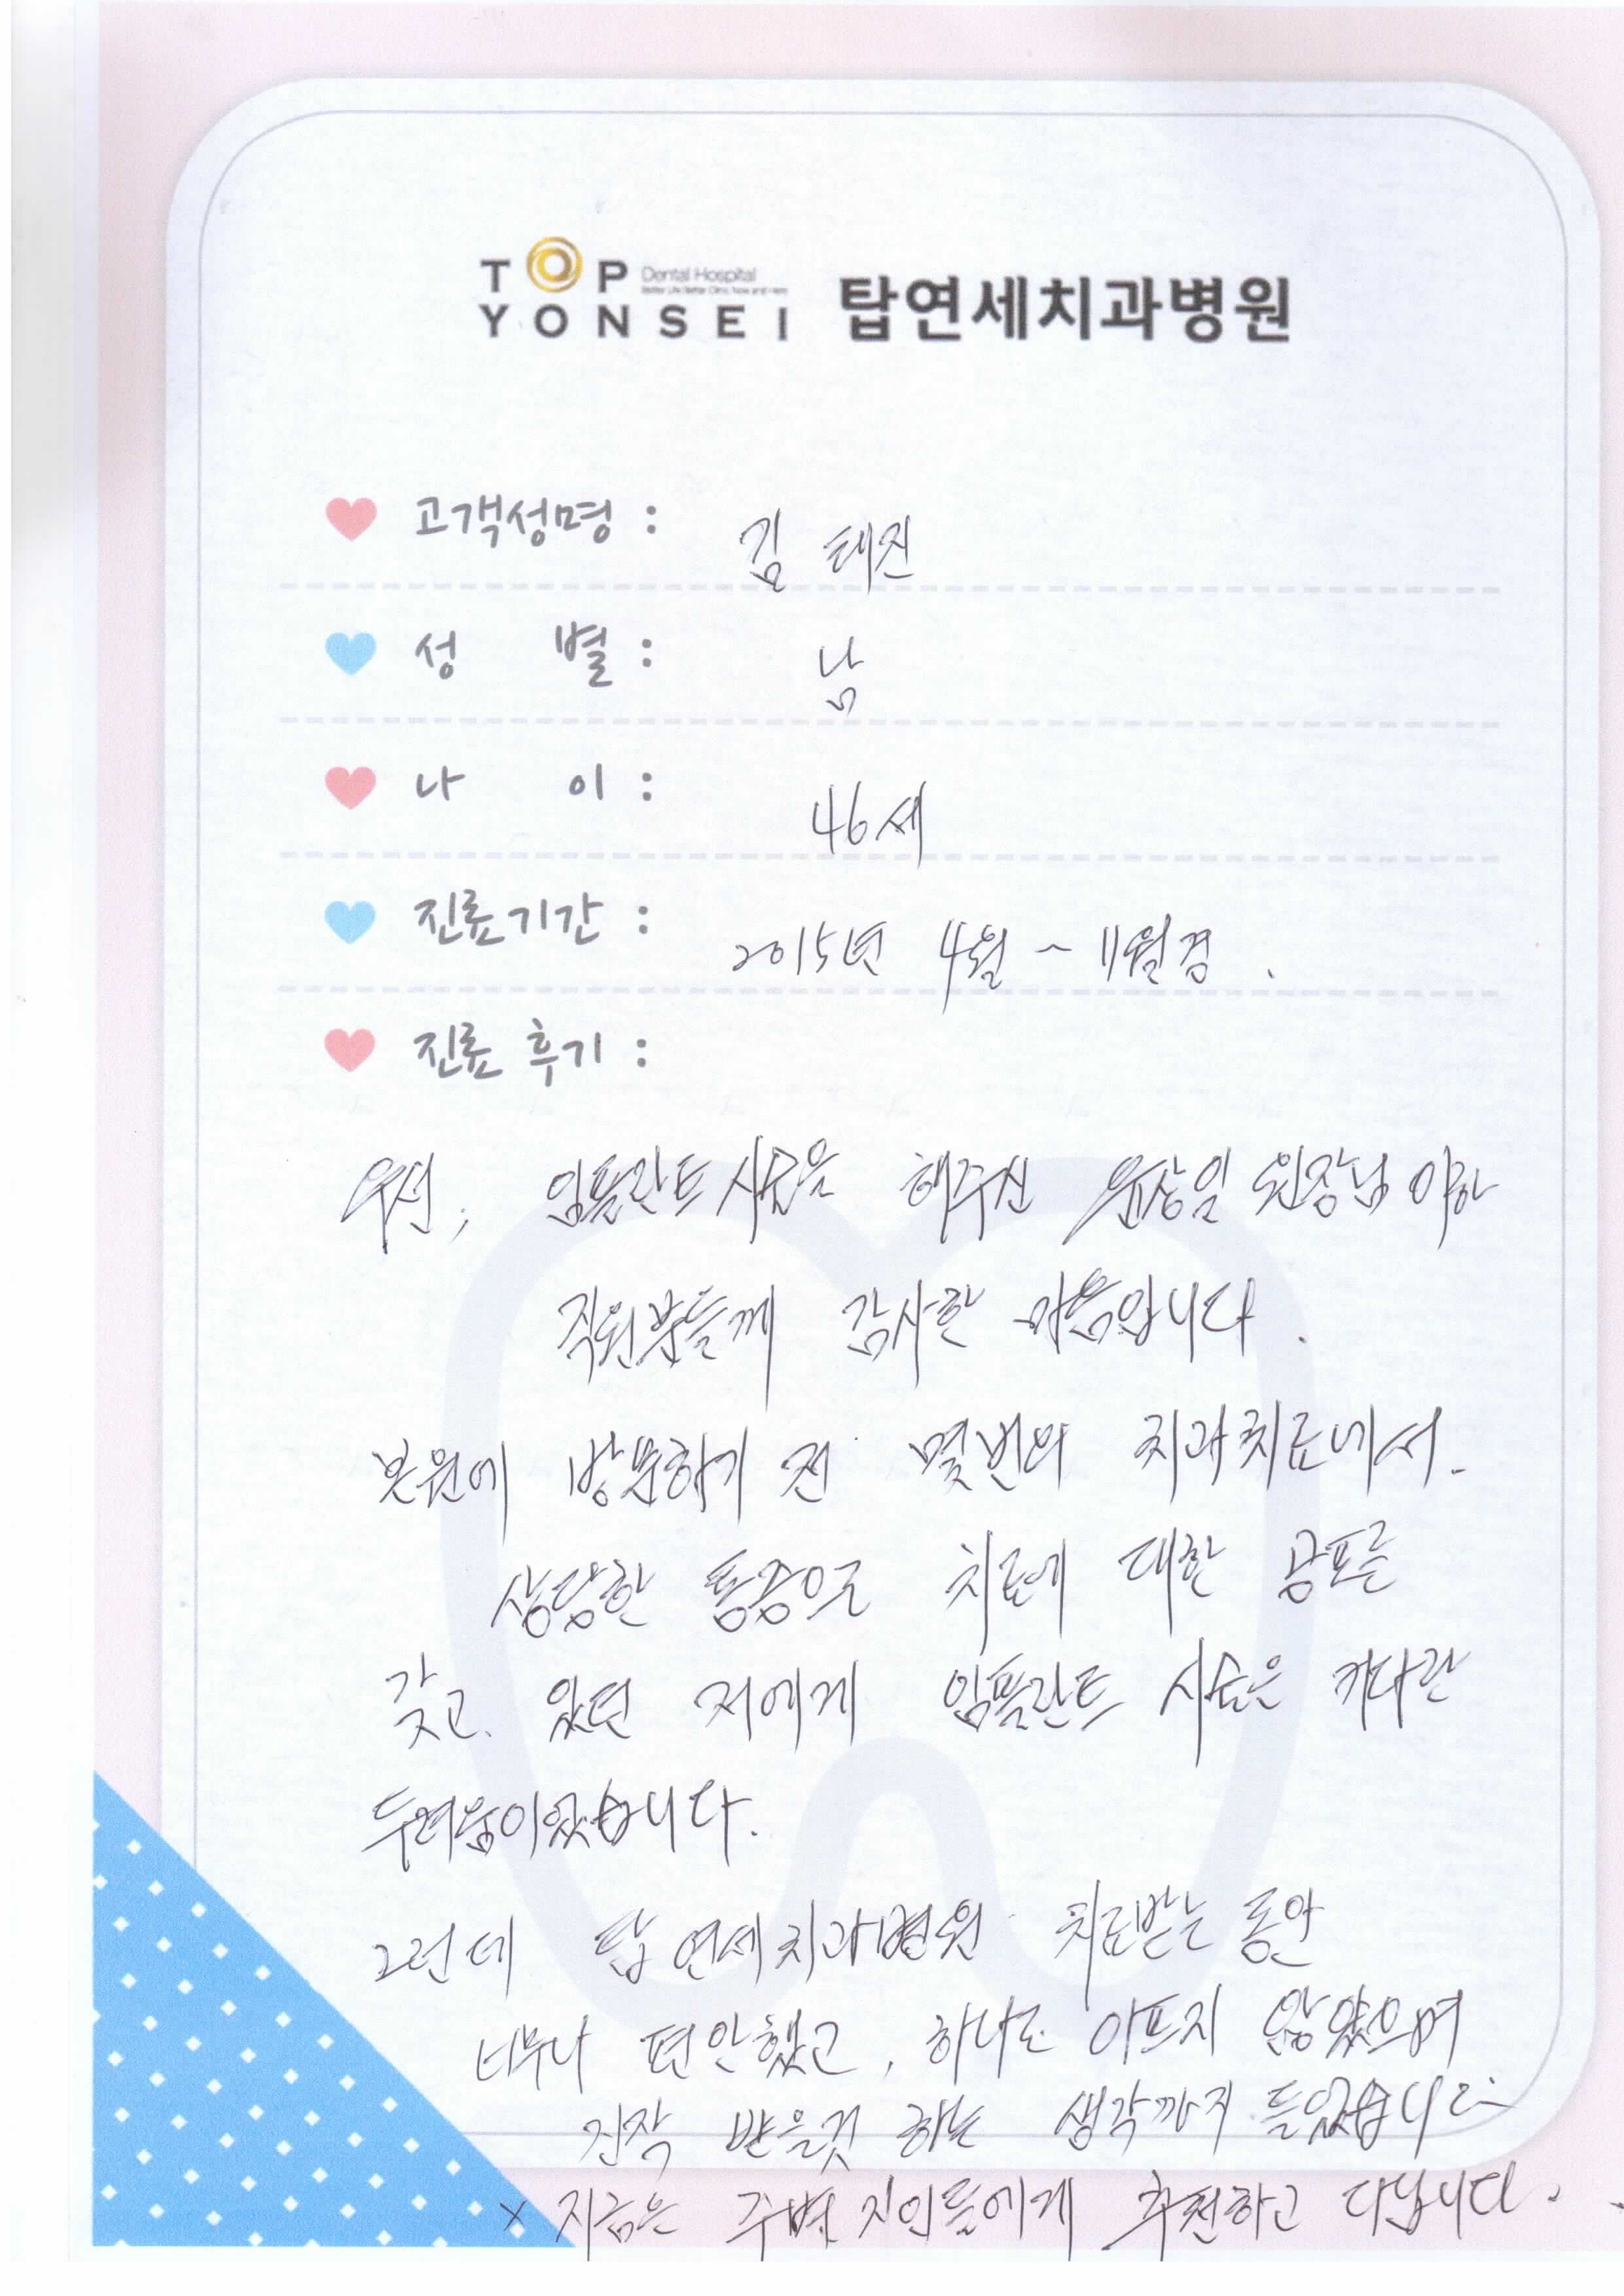 TOP Dental Hospital
YONSEI 탑연세치과병원
고객성명 : 김 태진
성 별 : 남
나 이 : 46세
진료기간 : 2015년 4월 ~ 11월경.
진료 후기 :
우선, 임플란트 시술을 해주신 윤상일 원장님 이하
직원분들께 감사한 마음입니다.
본원에 방문하기 전 몇번의 치과치료에서.
상당한 통증으로 치료에 대한 공포를
갖고. 있던 저에게 임플란트 시술은 커다란
두려움이었습니다.
그런데 탑연세치과병원 치료받는 동안
너무나 편안했고, 하나도 아프지 않았으며
진작 받을것 하는 생각까지 들었습니다.
x 지금은 주변 지인들에게 추천하고 다닙니다.